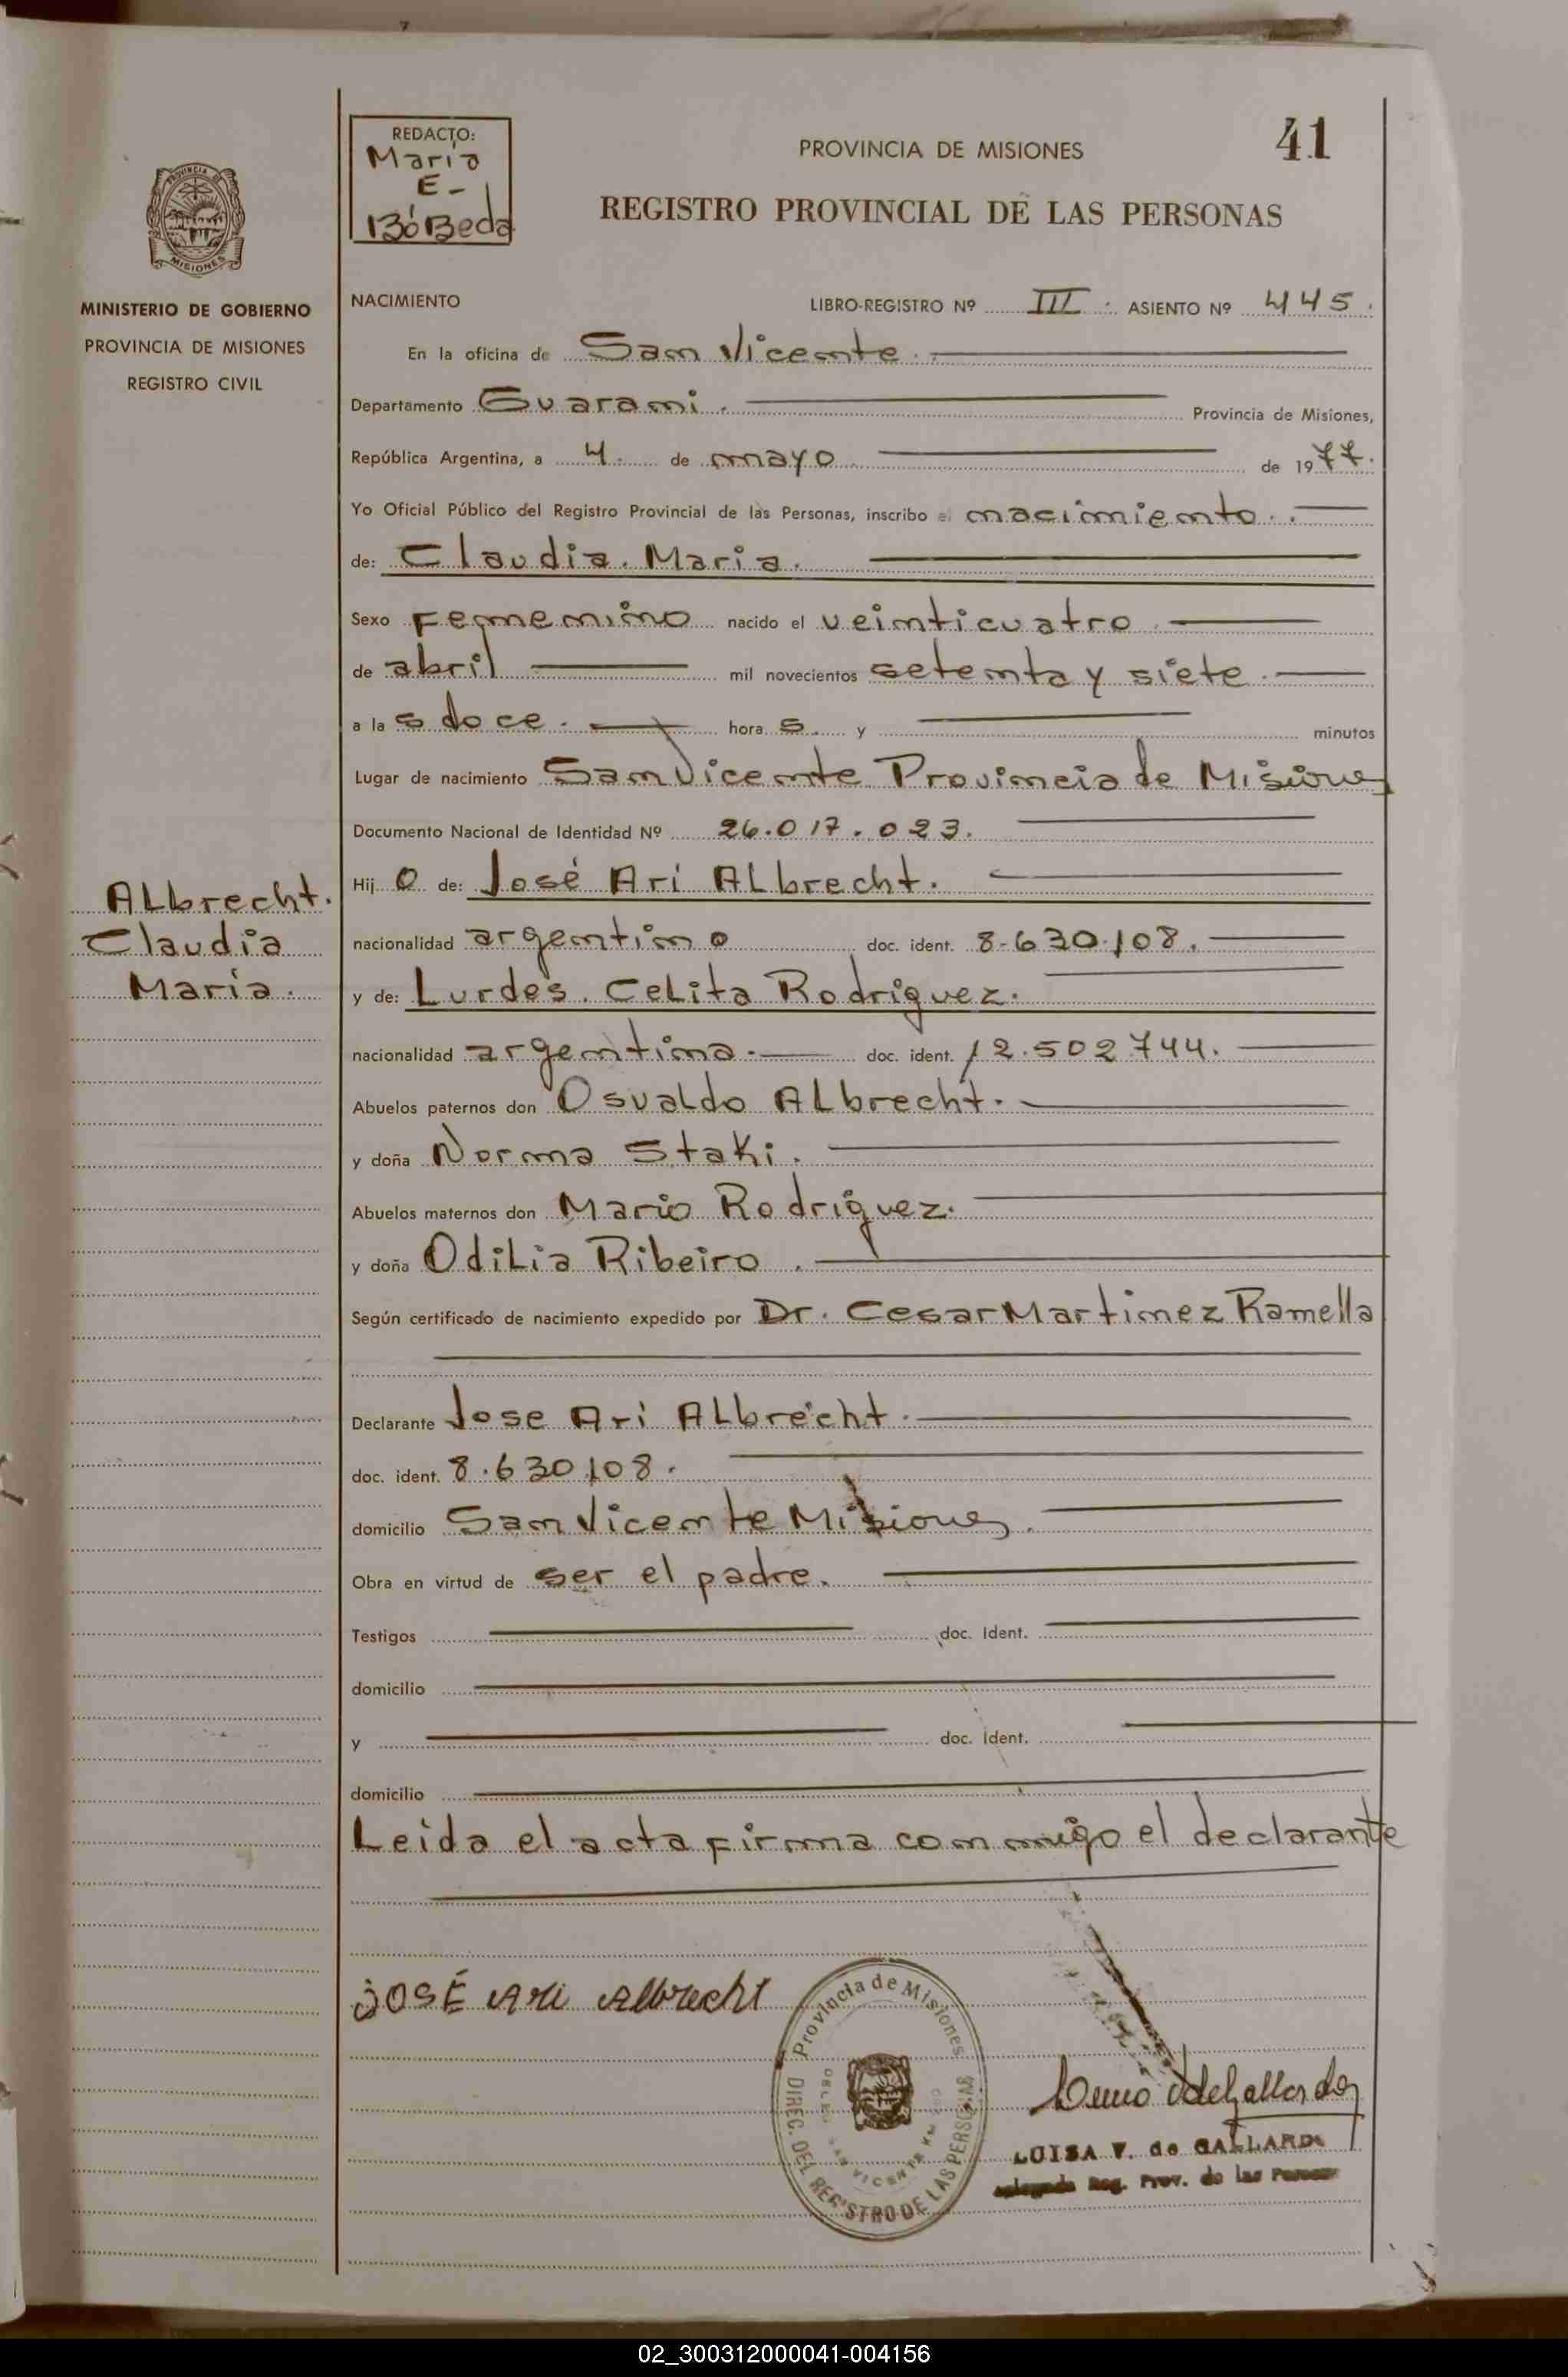 REDACTO:
Maria
E-
BóBeda
PROVINCIA DE MISIONES
41
REGISTRO PROVINCIAL DE LAS PERSONAS
PROVINCIA DE
MISIONES
MINISTERIO DE GOBIERNO
PROVINCIA DE MISIONES
REGISTRO CIVIL
NACIMIENTO LIBRO-REGISTRO Nº III. ASIENTO Nº 445.
En la oficina de San Vicente.
Departamento Guarani. Provincia de Misiones,
República Argentina, a 4. de mayo de 1977.
Yo Oficial Público del Registro Provincial de las Personas, inscribo el nacimiento.
de: Claudia. Maria.
Sexo femenino nacido el veinticuatro
de abril mil novecientos setenta y siete.
a la s doce. hora s y minutos
Lugar de nacimiento San Vicente Provincia de Misiones
Documento Nacional de Identidad Nº 26.017.023.
Hij o de: José Ari ALbrecht.
ALbrecht.
Claudia
Maria.
nacionalidad argentino doc. ident. 8-630.108.
y de: Lurdes. CeLita Rodriguez.
nacionalidad argentina. doc. ident. 12.502.744.
Abuelos paternos don OsvaLdo ALbrecht.
y doña Norma Staki.
Abuelos maternos don Mario Rodriguez.
y doña OdiLia Ribeiro.
Según certificado de nacimiento expedido por Dr. Cesar Martinez Ramella
Declarante Jose Ari ALbrecht.
doc. ident. 8.630.108.
domicilio San Vicente Misiones.
Obra en virtud de ser el padre.
Testigos doc. Ident.
domicilio
y doc. ident.
domicilio
Leida el acta firma conmigo el declarante
JOSÉ Ari Albrecht
Provincia de Misiones
DIREC. DEL REGISTRO DE LAS PERSONAS
SAN VICENTE
LUISA V. de GALLARDO
Reg. Prov. de las
02_300312000041-004156